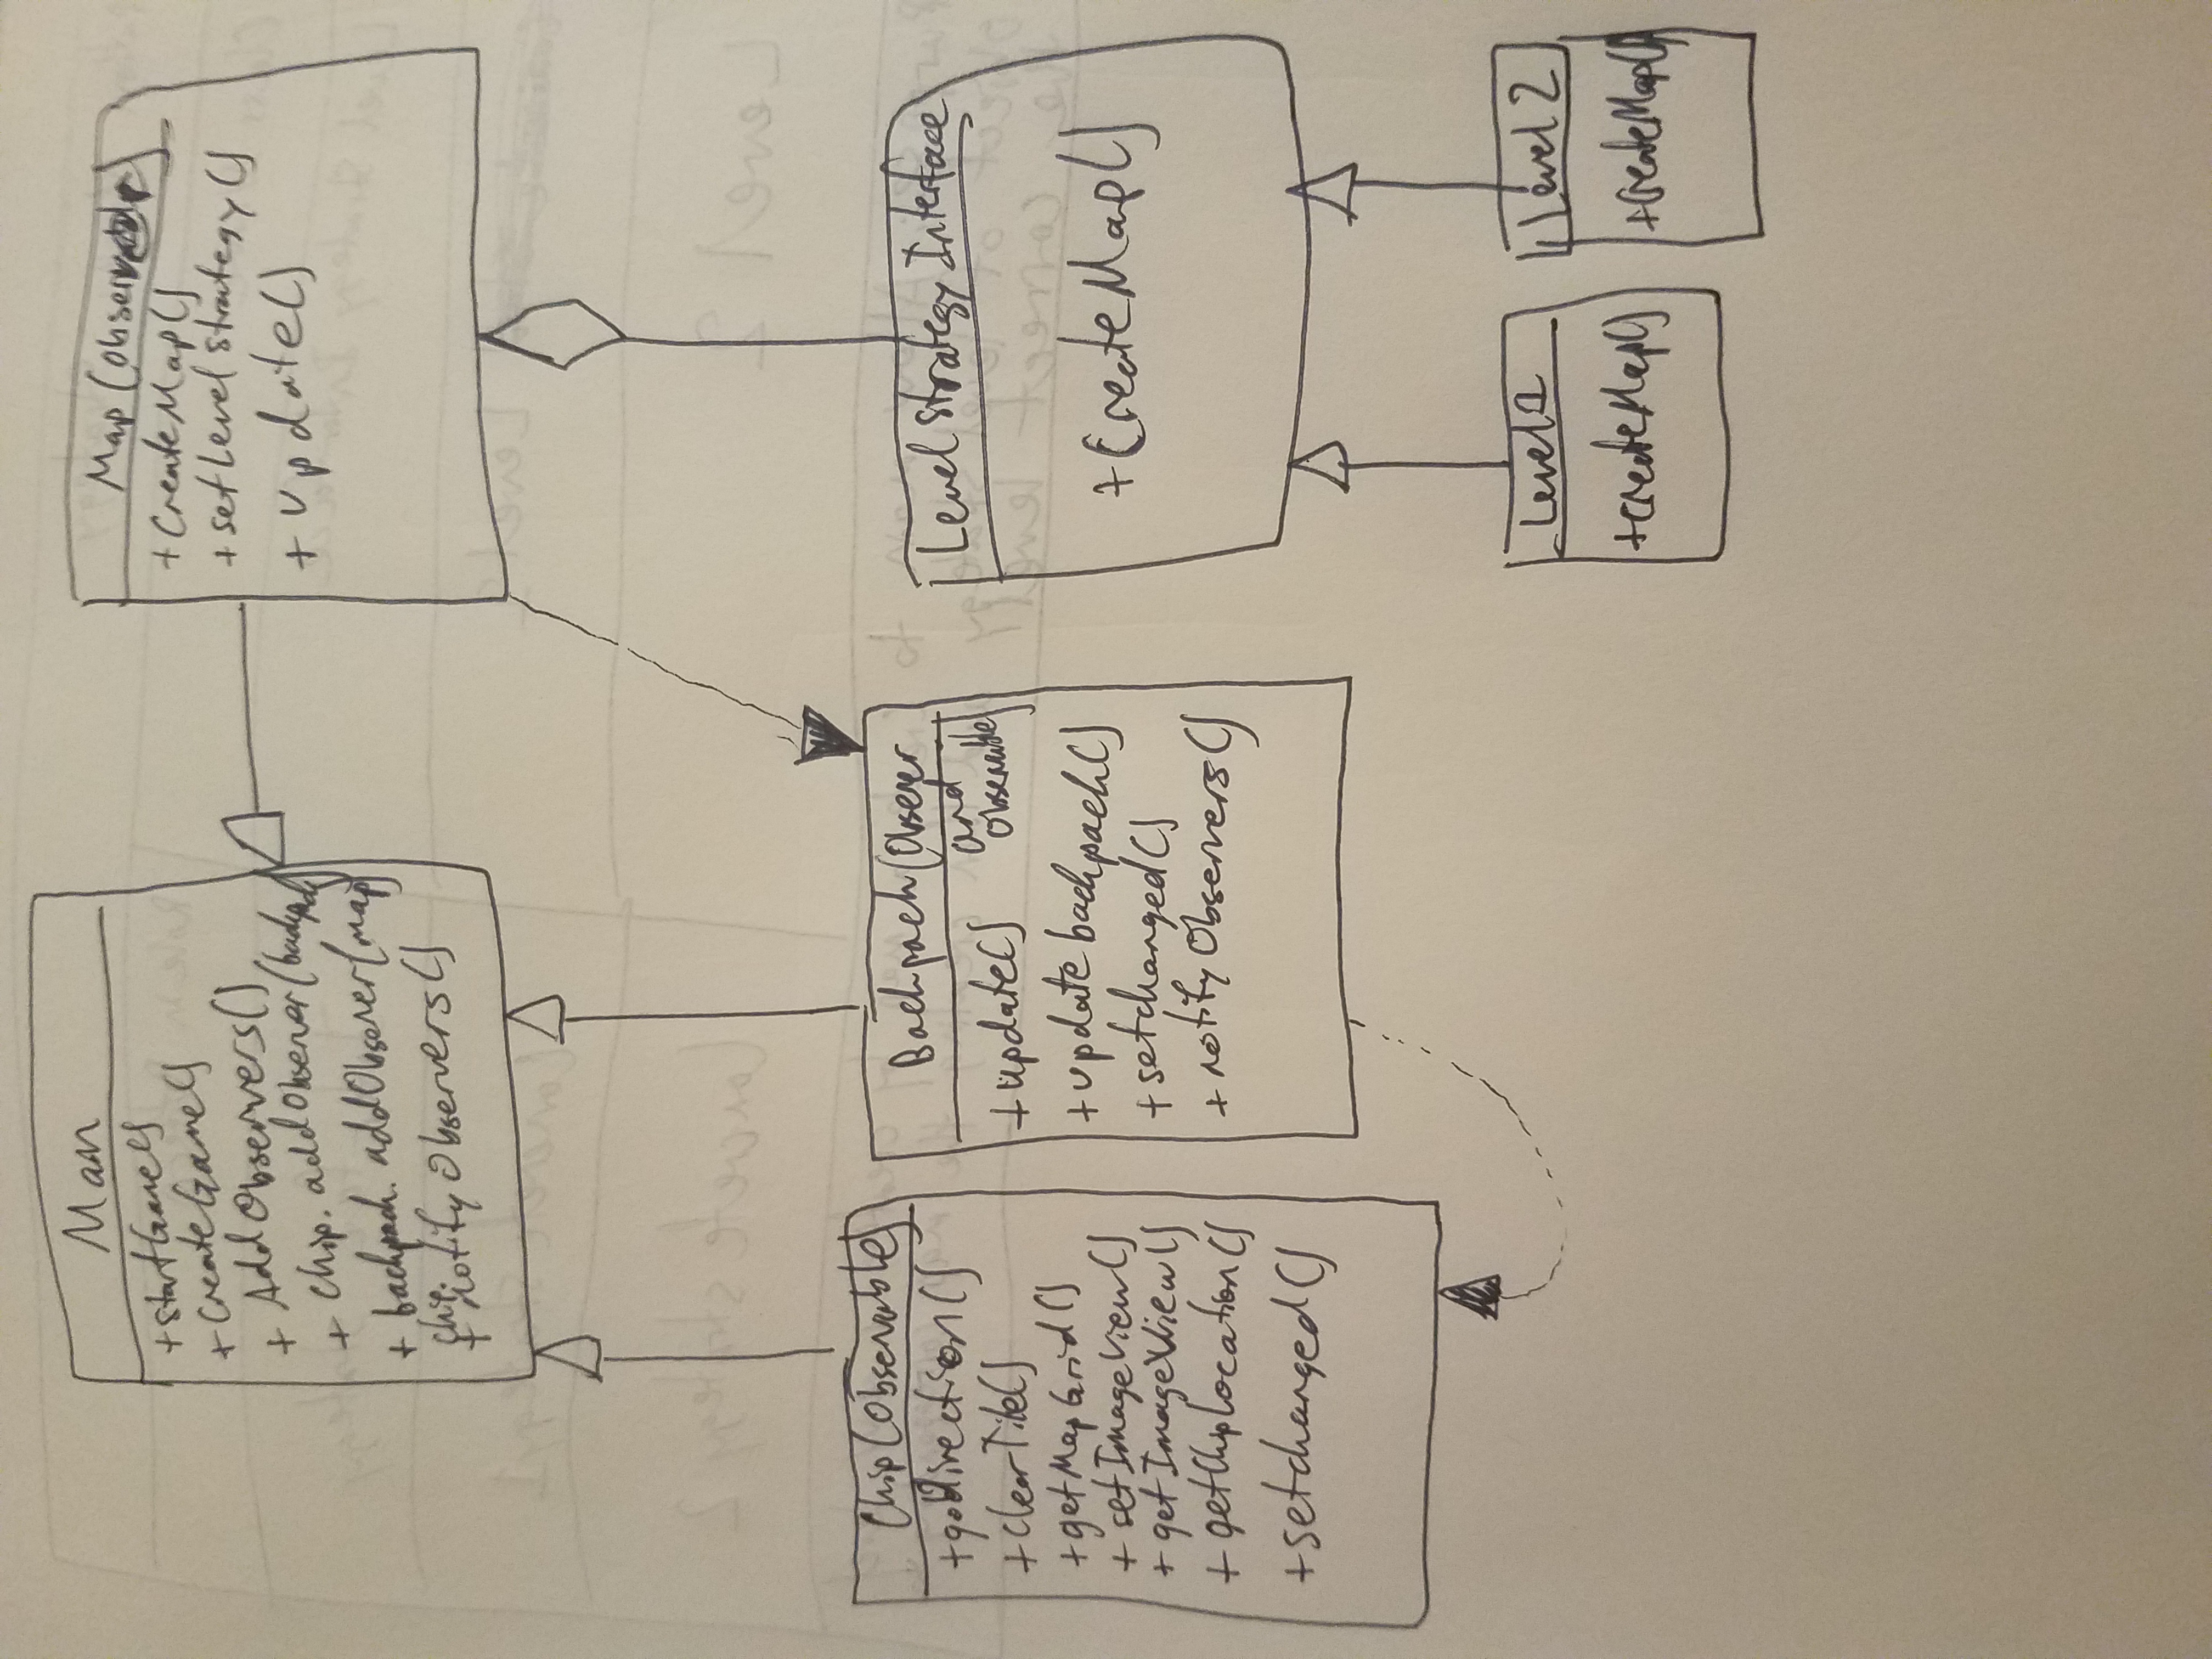 Main
+startGame()
+ CreateGame()
+ AddObservers()
+ Chip. addObserver(backpack)
+ backpack. addObserver(map)
chip.
+ notifyObservers()
Map (Observer)
+CreateMap()
+setLevelStrategy()
+ update()
Chip(Observable)
+goDirection()
+clearTile()
+getMapGrid()
+ setImageView()
+ getImageView()
+ getChipLocation()
+setchanged()
Backpack(Observer
and
Observable)
+update()
+update backpack()
+ setchanged()
+ notifyObservers()
Level Strategy Interface
+CreateMap()
Level 1
+createMap()
Level 2
+CreateMap()
Level 2
Concrete strategy 2